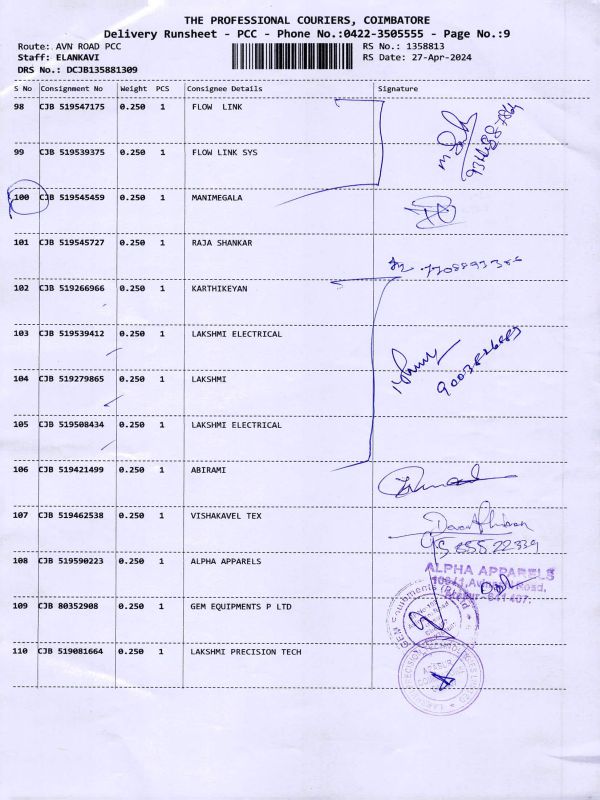 THE PROFESSIONAL COURIERS, COIMBATORE
Delivery Runsheet - PCC - Phone No.:0422-3505555 - Page No.:9
Route: AVN ROAD PCC RS No.: 1358813
Staff: ELANKAVI RS Date: 27-Apr-2024
DRS No.: DCJB135881309
S No Consignment No Weight PCS Consignee Details Signature
98 CJB 519547175 0.250 1 FLOW LINK
99 CJB 519539375 0.250 1 FLOW LINK SYS
100 CJB 519545459 0.250 1 MANIMEGALA
101 CJB 519545727 0.250 1 RAJA SHANKAR
7708893386
102 CJB 519266966 0.250 1 KARTHIKEYAN
103 CJB 519539412 0.250 1 LAKSHMI ELECTRICAL
104 CJB 519279865 0.250 1 LAKSHMI
105 CJB 519508434 0.250 1 LAKSHMI ELECTRICAL
106 CJB 519421499 0.250 1 ABIRAMI
107 CJB 519462538 0.250 1 VISHAKAVEL TEX
95 855 22339
108 CJB 519590223 0.250 1 ALPHA APPARELS
ALPHA APPARELS
109 CJB 80352908 0.250 1 GEM EQUIPMENTS P LTD
110 CJB 519081664 0.250 1 LAKSHMI PRECISION TECH